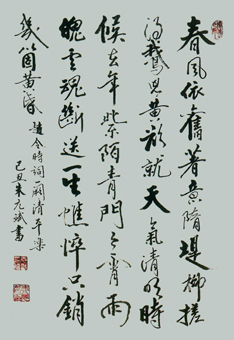 春風依舊著意隋堤柳搓
得鵝兒黃欲就天氣清明時
候去年紫陌青門今宵雨
魄雲魂斷送一生憔悴只銷
幾箇黃昏
趙令時詞一闋清平樂
己丑朱元斌書